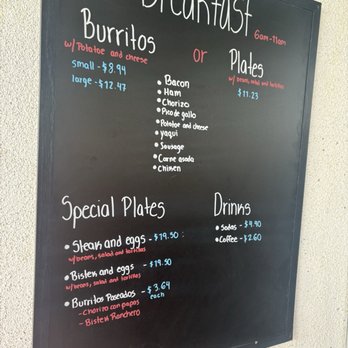 Breakfast
6am-11am
Burritos
w/Potatoe and cheese
small - $8.99
large - $12.47
or
Plates
w/beans, salad and tortillas
$11.23
• Bacon
• Ham
• Chorizo
• Pico de gallo
• Potatoe and cheese
• yaqui
• Sausage
• Carne asada
• Chiken
Special Plates
• Steak and eggs - $19.50
w/beans, salad and tortillas
• Bistek and eggs - $19.50
w/beans, salad and tortillas
• Burritos Paseados - $3.69
each
- Chorizo con papas
- Bistek Ranchero
Drinks
• Sodas - $4.90
• Coffee - $2.60